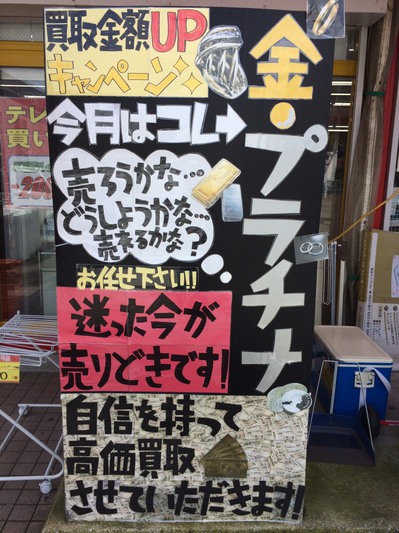 買取金額UP
キャンペーン
今月はコレ→
金・プラチナ
売ろうかな…
どうしようかな…
売れるかな?
お任せ下さい!!
迷った今が
売りどきです!
自信を持って
高価買取
させていただきます!
テレ
買い